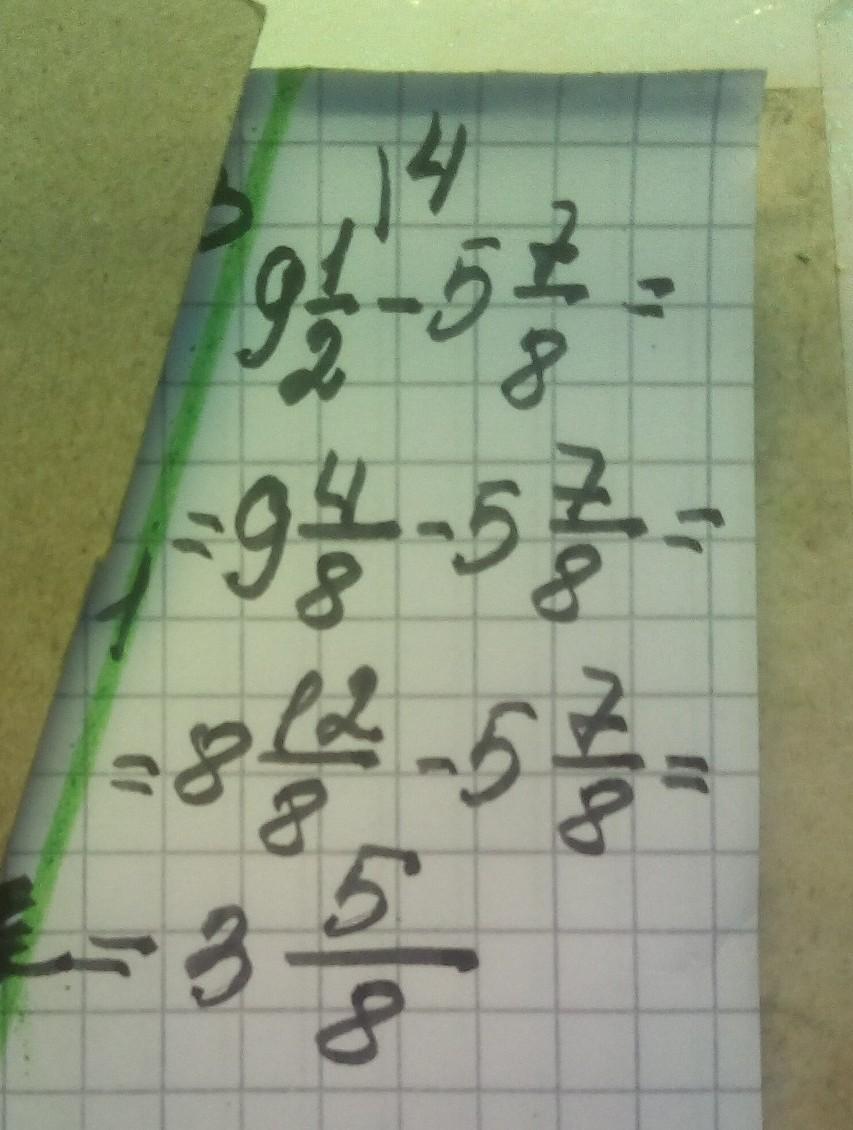 )4
9 1/2 - 5 7/8 =
= 9 4/8 - 5 7/8 =
1
= 8 12/8 - 5 7/8 =
= 3 5/8